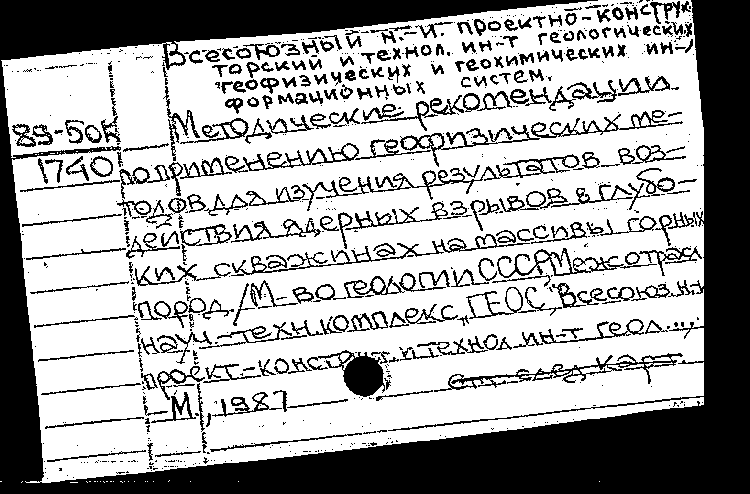 Всесоюзный н.-и. проектно-конструк-
торский и технол. ин-т геологических
геофизических и геохимических ин-
формационных систем.
89-50к
1740
Методические рекомендации
по применению геофизических ме-
тодов для изучения результатов воз-
действия ядерных взрывов в глубо-
ких скважинах на массивы горных
пород. / М-во геологии СССР, Межотрасл.
науч.-техн. комплекс "ГЕОС", Всесоюз. н.-и.
проект.-конструкт. и технол. ин-т геол...,
- М., 1987
см. след. карт.